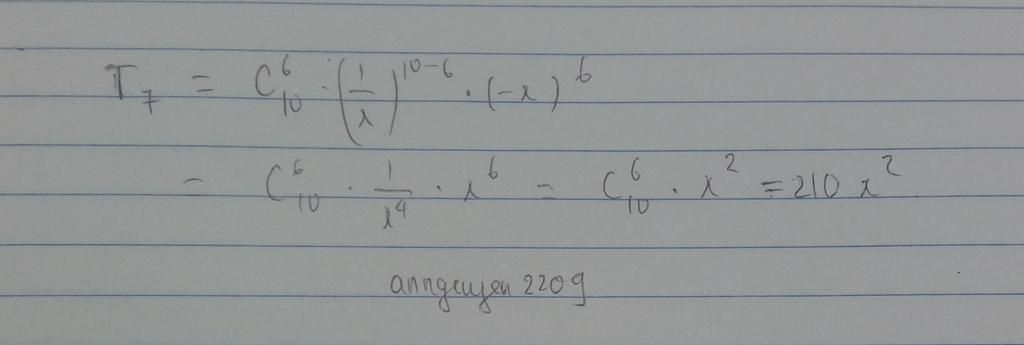 T₇ = C₁₀⁶ · (1/x)¹⁰⁻⁶ · (-x)⁶
= C₁₀⁶ · 1/x⁴ · x⁶ = C₁₀⁶ · x² = 210 x²
anngeuyen 2209